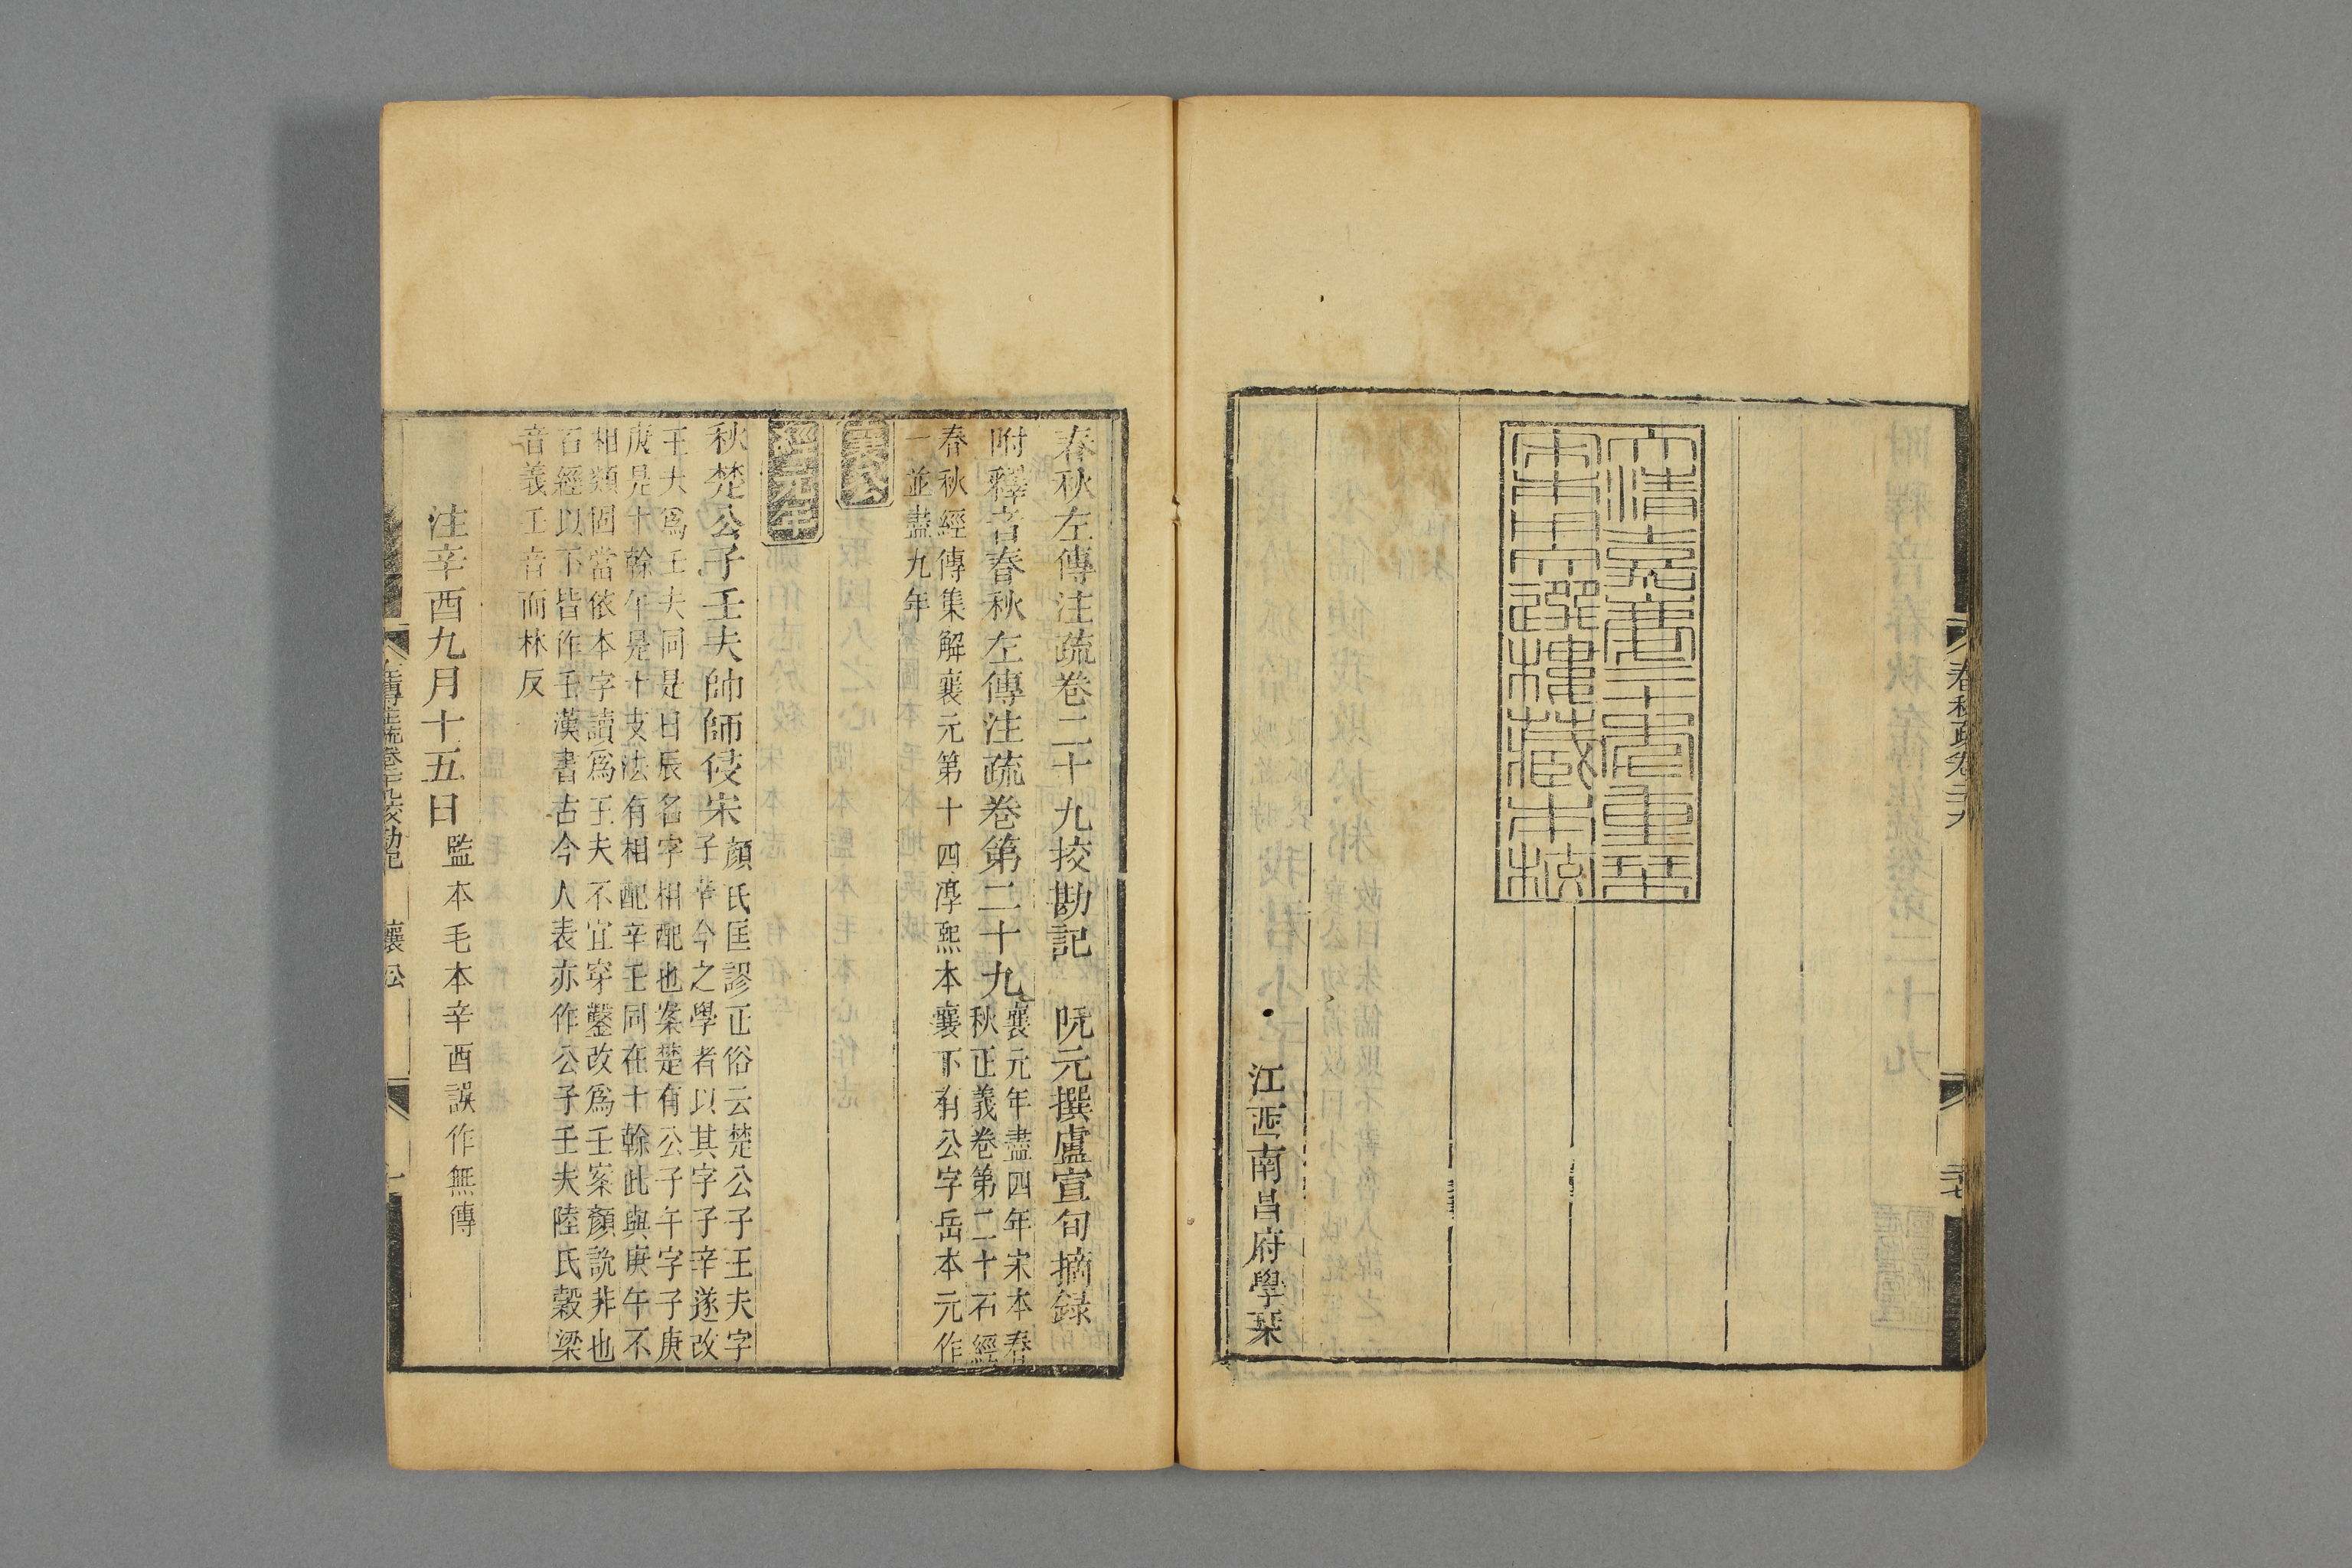 春秋疏卷二十九
大清嘉慶二十年重栞
宋本用文選樓藏本校
江西南昌府學栞
春秋左傳注疏卷二十九挍勘記　阮元撰盧宣旬摘録
附釋音春秋左傳注疏卷第二十九
襄元年盡四年宋本春
秋正義卷第二十石經
春秋經傳集解襄元第十四淳熙本襄下有公字岳本元作
一並盡九年
襄公
經元年
秋楚公子壬夫帥師侵宋
顏氏匡謬正俗云楚公子王夫字
子辛今之學者以其字子辛遂改
王夫爲壬夫同是日辰名字相配也案楚有公子午字子庚
庚是十幹午是十支法有相配辛壬同在十幹此與庚午不
相類固當依本字讀爲王夫不宜穿鑿改爲壬案顏説非也
石經以下皆作壬漢書古今人表亦作公子壬夫陸氏穀梁
音義壬音而林反
注辛酉九月十五日
監本毛本辛酉誤作無傳
左傳注疏卷二十九挍勘記　襄公　一